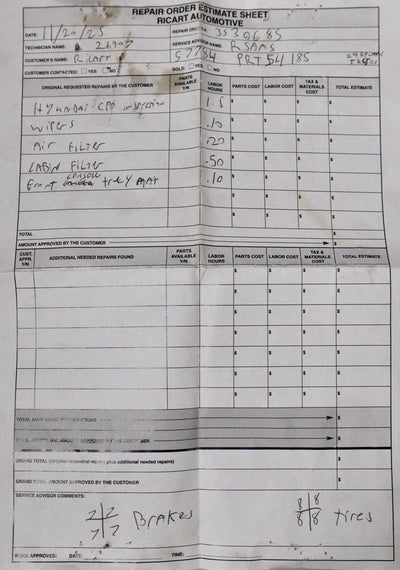 REPAIR ORDER ESTIMATE SHEET
RICART AUTOMOTIVE
DATE: 11/20/25 REPAIR ORDER #
TECHNICIAN NAME: SERVICE ADVISOR NAME:
CUSTOMER'S NAME: Ricart 57784 PRT54185
CUSTOMER CONTACTED: YES NO SOLD: YES NO
ORIGINAL REQUESTED REPAIRS BY THE CUSTOMER PARTS AVAILABLE Y/N LABOR HOURS PARTS COST LABOR COST TAX & MATERIALS COST TOTAL ESTIMATE
Hyundai CPO inspection 1.5 $ $ $ $
wipers .10 $ $ $ $
Air Filter .20 $ $ $ $
CABIN FILTER .50 $ $ $ $
Front CONSOLE MAT .10 $ $ $ $
$ $ $ $
$ $ $ $
TOTAL
AMOUNT APPROVED BY THE CUSTOMER $
CUST. APPR. Y/N ADDITIONAL NEEDED REPAIRS FOUND PARTS AVAILABLE Y/N LABOR HOURS PARTS COST LABOR COST TAX & MATERIALS COST TOTAL ESTIMATE
$ $ $ $
$ $ $ $
$ $ $ $
$ $ $ $
$ $ $ $
$ $ $ $
$ $ $ $
TOTAL ADDITIONAL REPAIRS FOUND $
TOTAL ADDITIONAL AMOUNT APPROVED BY THE CUSTOMER $
GRAND TOTAL (Original requested repairs plus additional needed repairs) $
GRAND TOTAL AMOUNT APPROVED BY THE CUSTOMER $
SERVICE ADVISOR COMMENTS:
7 7 8 8
7 7 Brakes 8 8 tires
WORK APPROVED: DATE: TIME: